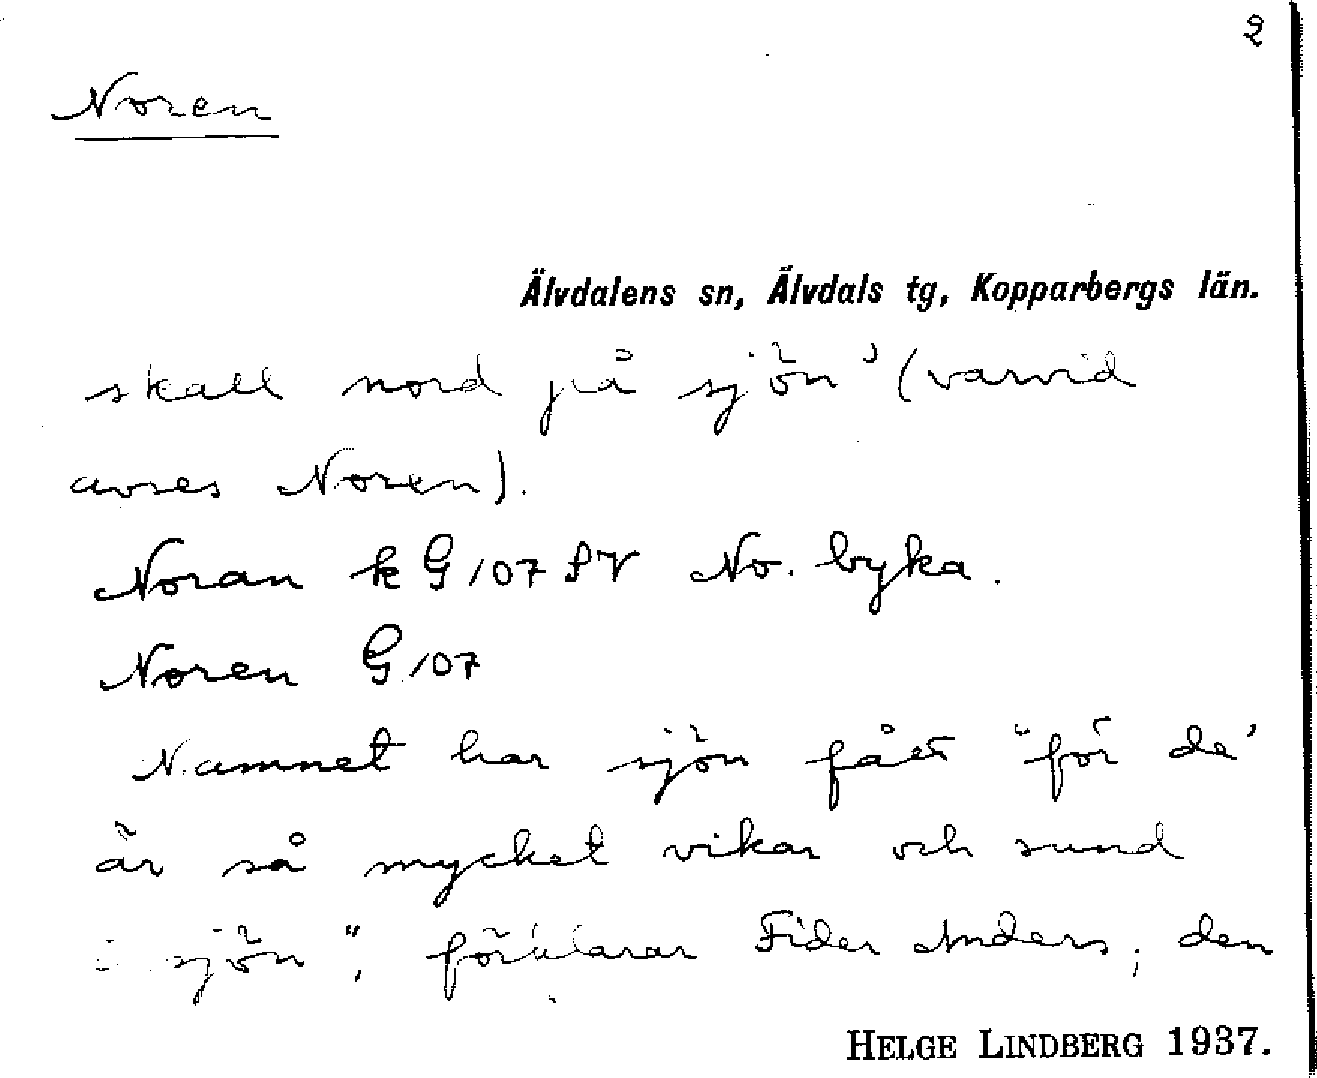 2
Noren
Älvdalens sn, Älvdals tg, Kopparbergs län.
skall nord på sjön" (varvid
avses Noren).
Noran k G107 SV No. byka.
Noren G107
Namnet har sjön fått "för de'
är så mycket vikar och sund
i sjön", förklarar Fider Anders; den
HELGE LINDBERG 1937.